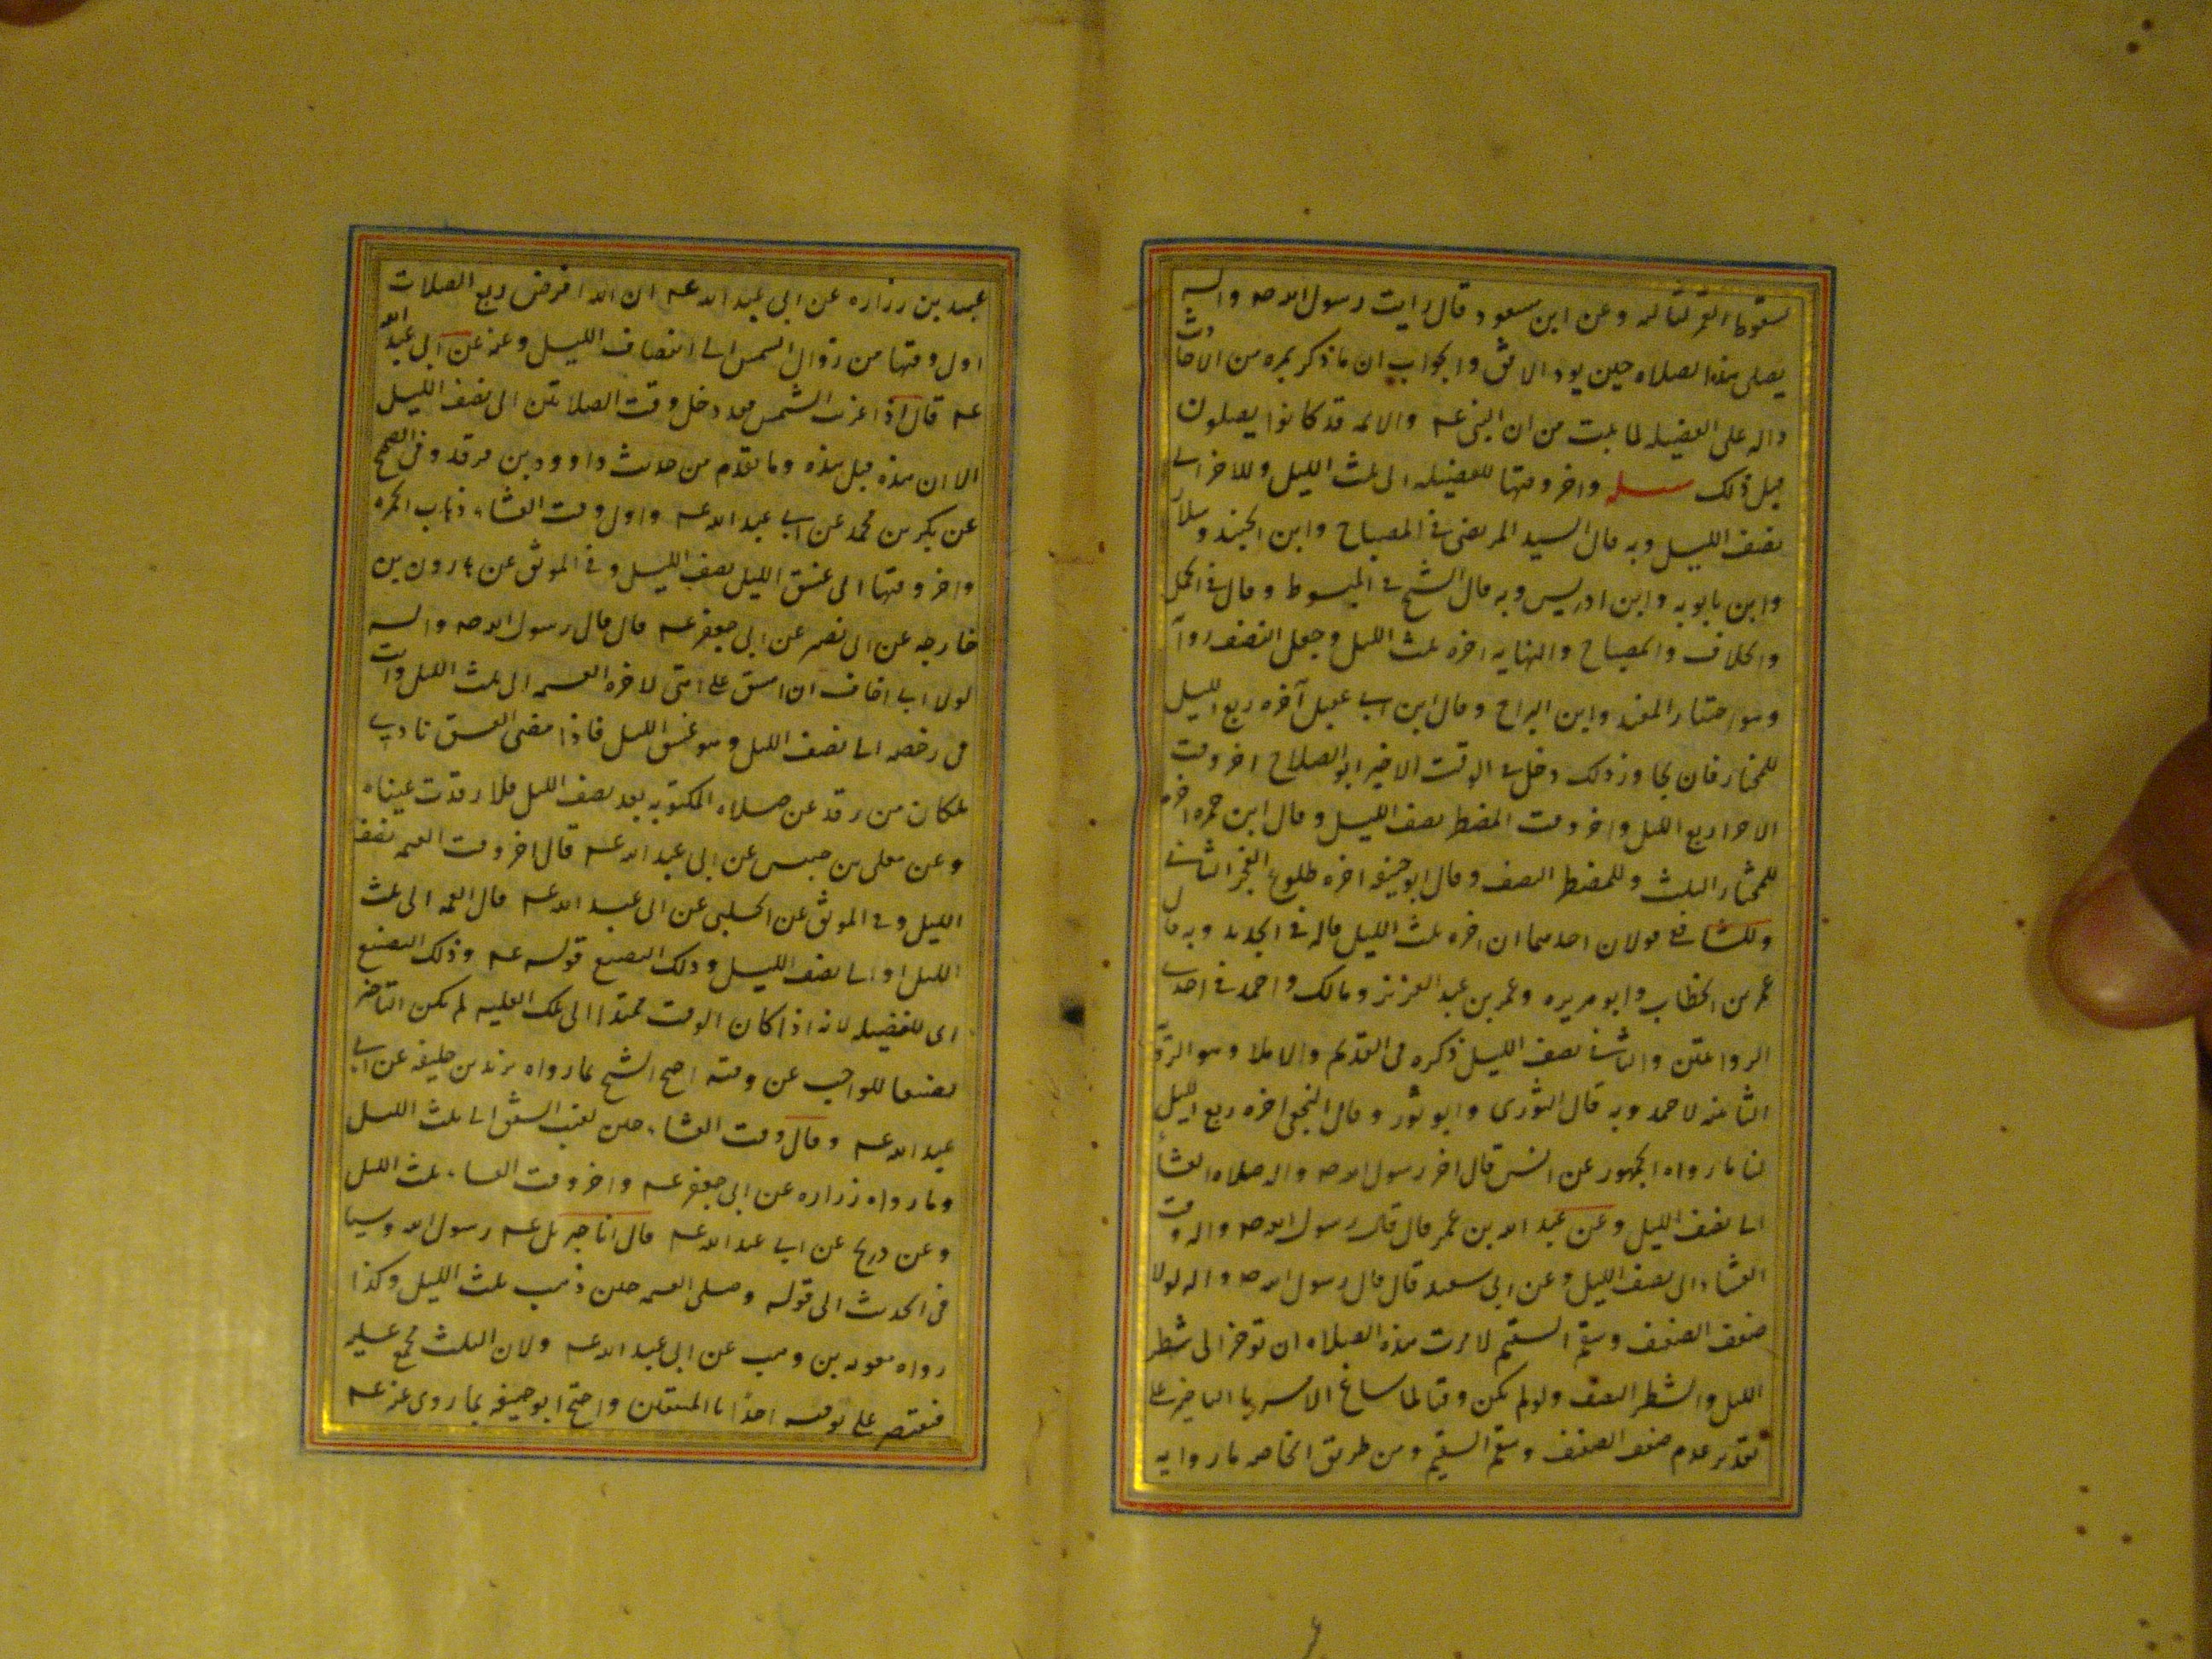 لسقوط القمر لثالثه وعن ابن مسعود قال رایت رسول الله صه واله
یصلی هذه الصلاه حین یسود الافق والجواب ان ما ذکر بمره من الاحادث
داله علی الفضیله لما ثبت من ان النبی عه والائمه قد کانوا یصلون
قبل ذلک مسله واخر وقتها للفضیله الی ثلث اللیل وللاخرا الی
نصف اللیل وبه قال السید المرتضی فی المصباح وابن الجنید وسلار
وابن بابویه وابن ادریس وبه قال الشیخ فی المبسوط وقال فی الجمل
والخلاف والمصباح والنهایه اخره ثلث اللیل وجعل النصف روآ
وهو اختیار المفید وابن البراج وقال ابن ابی عقیل آخره ربع اللیل
للمختار فان تجاوز ذلک دخل فی الوقت الاخیر ابو الصلاح اخر وقت
الاجزا ربع اللیل واخر وقت المضطر نصف اللیل وقال ابن حمزه اخره
للمختار الثلث وللمضطر النصف وقال ابو حنیفه اخره طلوع الفجر الثانی
وللشافعی قولان احدهما ان اخره ثلث اللیل قاله فی الجدید وبه قال
عمر بن الخطاب وابو هریره وعمر بن عبد العزیز ومالک واحمد فی احدی
الروایتین والثانی نصف اللیل ذکره فی القدیم والاملا وهو الروآ
الثانیه لاحمد وبه قال الثوری وابو ثور وقال النخعی اخره ربع اللیل
لنا ما رواه الجمهور عن انس قال اخر رسول الله صه واله صلاه العشآ
الی نصف اللیل وعن عبد الله بن عمر قال قال رسول الله صه واله وقت
العشاء الی نصف اللیل وعن ابی سعید قال قال رسول الله صه واله لولا
ضعف الضعیف وسقم السقیم لامرت هذه الصلاه ان توخر الی شطر
اللیل والشطر النصف ولو لم یکن وقتا لما ساغ الامر بها التاخیر علی
تقدیر عدم ضعف الضعیف وسقم السقیم ومن طریق الخاصه ما رواه
عبید بن زراره عن ابی عبد الله عه ان الله افرض اربع الصلات
اول وقتها من زوال الشمس الی انتصاف اللیل وعنه عن ابی عبد الله
عه قال اذا غربت الشمس فقد دخل وقت الصلاتین الی نصف اللیل
الا ان هذه قبل هذه وما تقدم من حدیث داوود بن فرقد وفی الصحیح
عن بکر بن محمد عن ابی عبد الله عه واول وقت العشاء ذهاب الحمره
واخر وقتها الی غسق اللیل نصف اللیل وفی الموثق عن هارون بن
خارجه عن ابی بصیر عن ابی جعفر عه قال قال رسول الله صه واله
لولا انی اخاف ان اشق علی امتی لاخرت العتمه الی ثلث اللیل وانت
فی رخصه الی نصف اللیل وهو غسق اللیل فاذا مضی الغسق نادی
ملکان من رقد عن صلاه المکتوبه بعد نصف اللیل فلا رقدت عیناه
وعن معلی بن خنیس عن ابی عبد الله عه قال اخر وقت العتمه نصف
اللیل وفی الموثق عن الحلبی عن ابی عبد الله عه قال العتمه الی ثلث
اللیل او الی نصف اللیل وذلک التضییع قوله عه وذلک التضییع
ای للفضیله لانه اذا کان الوقت ممتدا الی تلک الغایه لم یکن التاخیر
تضییعا للواجب عن وقته احتج الشیخ بما رواه یزید بن خلیفه عن ابی
عبد الله عه وقال وقت العشاء حین یغیب الشفق الی ثلث اللیل
وما رواه زراره عن ابی جعفر عه واخر وقت العشاء ثلث اللیل
وعن ذریح عن ابی عبد الله عه قال اتا جبرئل عه رسول الله وسیا
فی الحدیث الی قوله وصلی العتمه حین ذهب ثلث اللیل وکذا
رواه معویه بن وهب عن ابی عبد الله عه ولان الثلث مجمع علیه
فیقتصر علی توقیته اخذا بالمتیقن واحتج ابو حنیفه بما روی عنه عه